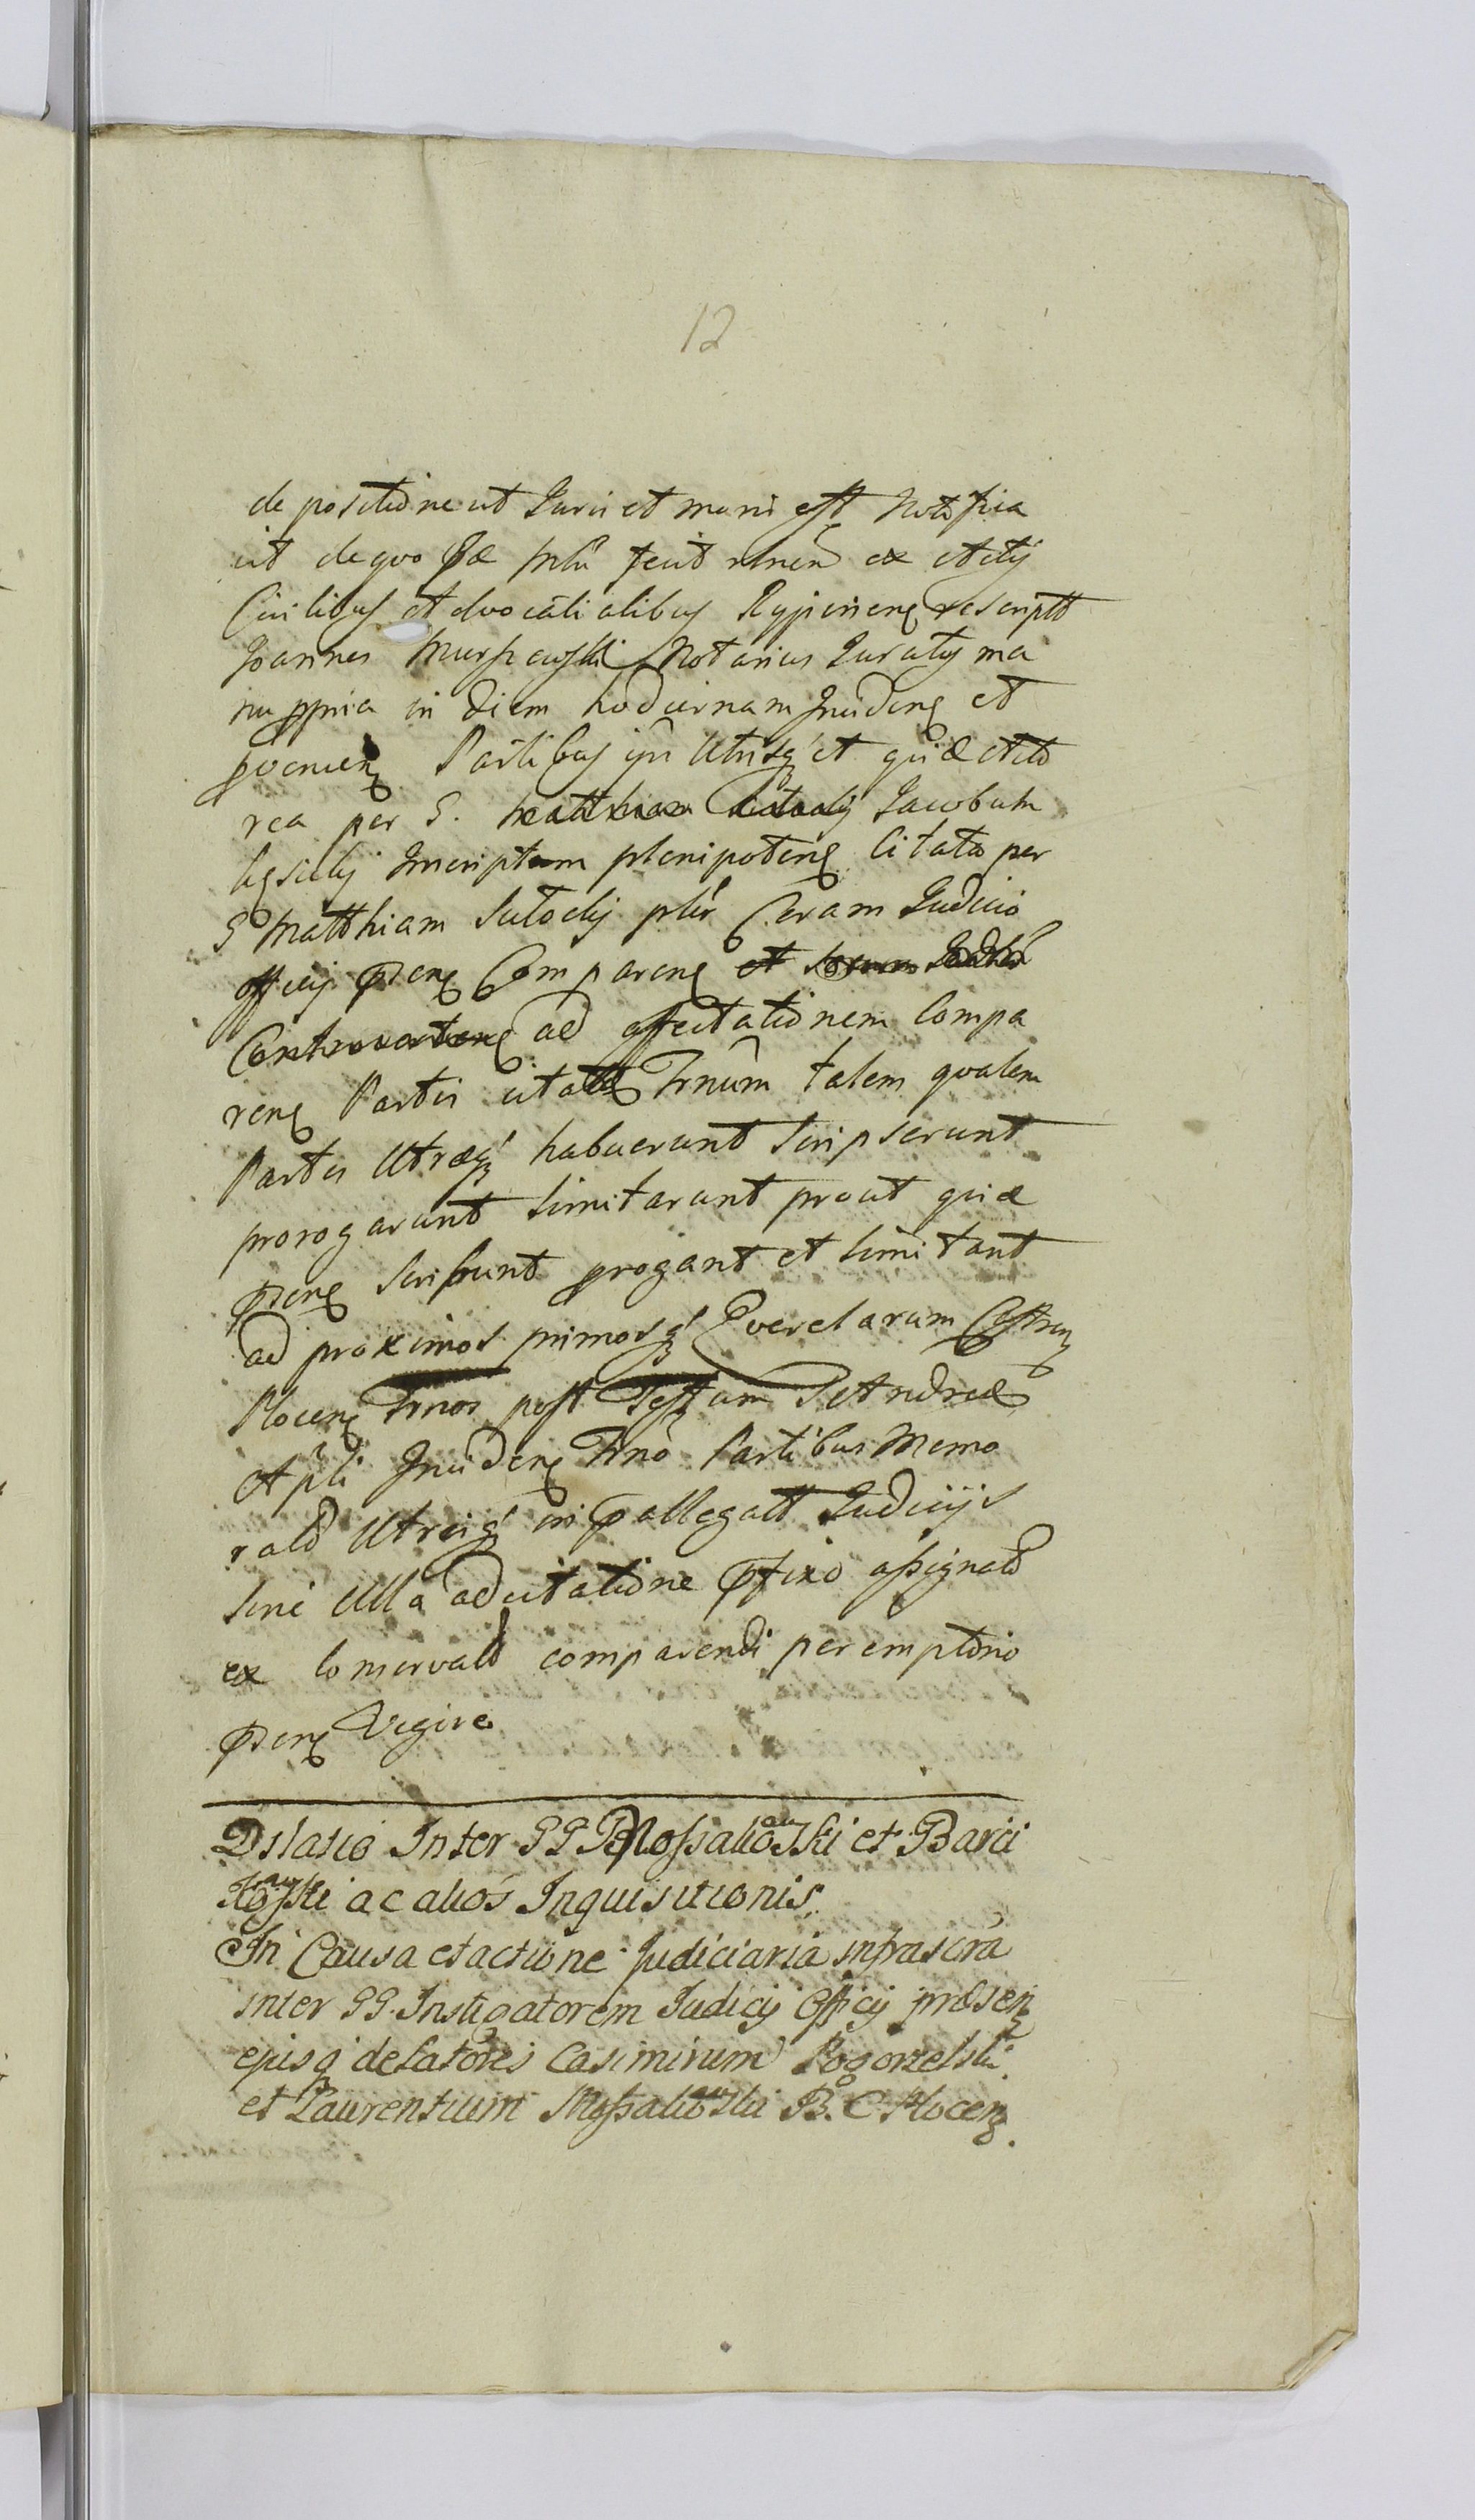 12
de positione ut Juris et moris est Notifica
vit de quo fecit ex Actis
Civilibus Advocatialibus Rypinen rescript
Joannes Murszewski Notarius Juratus ma
nu ppria in diem hodiernam Incidens et
pvenien Partibus ipsis Utrisq et quidem Acto
rea per G. Jacobum
Inscriptum plenipoten Citata per
G Matthiam Sutocky plr Coram Judicio
Officij psens Comparens et
Controverten ad affectationem Compa
rens Partis citatae Trnum talem qualem
Partes Utraeq habuerunt Scripserunt
prorogarunt limitarunt prout quidem
psens Scribunt progant et limitant
ad proximos primosq Querelarum Castren
Plocens Trnos post Festum S Andreae
Apli Inciden Trno Partibus Memo
rats Utrisq in pallegatt Judicijs
sine Ulla adcitatione pfixo assignato
ex conservato comparendi peremptorio
psens Vigore
Dilatio Inter GG Mossakowski et Barci
kowski ac alios Inquisitionis.
In Causa et actione Judiciaria infrascra
inter GG. Instigatorem Judicij Officij praesen
ejusq delatores Casimirum Pogorzelski
et Laurentium Mossakowski B. C. Plocen.